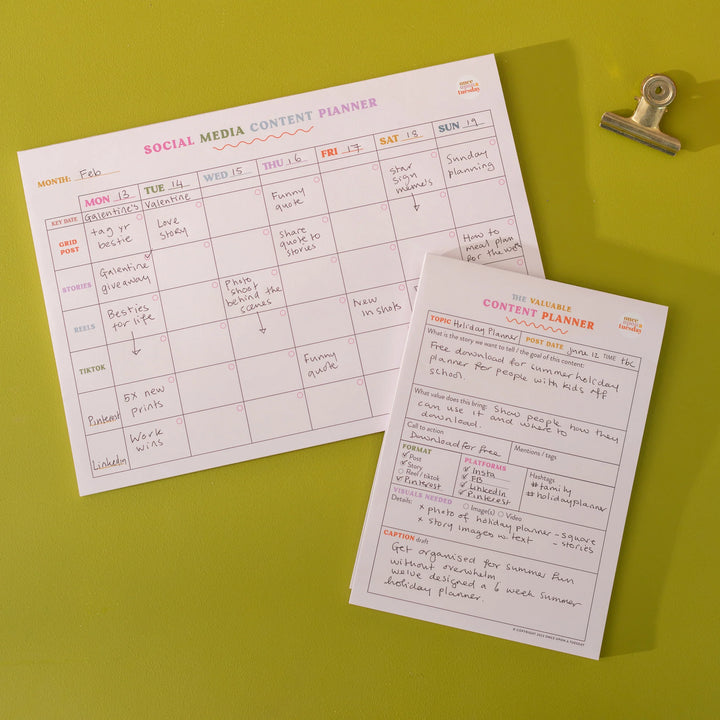 once
upon a
tuesday
SOCIAL MEDIA CONTENT PLANNER
MONTH: Feb
MON 13 TUE 14 WED 15 THU 16 FRI 17 SAT 18 SUN 19
KEY DATE Galentine's Valentine
GRID POST
tag yr bestie
Love story
Funny quote
star sign meme's
Sunday planning
STORIES
Galentine giveaway
Share quote to stories
How to meal plan for the week
REELS
Besties for life
Photo shoot behind the scenes
New in shots
TIKTOK
Funny quote
Pinterest
5x new prints
Linkedin
Work wins
THE VALUABLE
CONTENT PLANNER
once
upon a
tuesday
TOPIC Holiday Planner POST DATE June 12 TIME tbc
What is the story we want to tell / the goal of this content:
Free download for summer holiday
planner for people with kids off
school.
What value does this bring: Show people how they
can use it and where to
download.
Call to action
Download for free
Mentions / tags
FORMAT
Post
Story
Reel / tiktok
Pinterest
PLATFORMS
Insta
FB
Linkedin
Pinterest
Hashtags
#family
#holidayplanner
VISUALS NEEDED Image(s) Video
Details:
x photo of holiday planner - square
x story images w text - stories
CAPTION draft
Get organised for summer fun
without overwhelm
we've designed a 6 week summer
holiday planner.
© COPYRIGHT 2023 ONCE UPON A TUESDAY